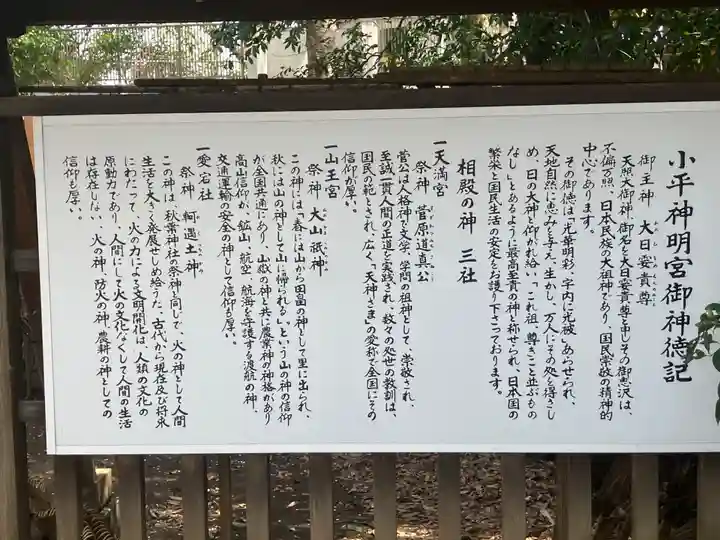 小平神明宮御神徳記
御主神 大日孁貴尊
天照大御神の御名を大日孁貴尊と申しその御恵沢は、
不偏万照、日本民族の大祖神であり、国民崇敬の精神的
中心であります。
その御徳は「光華明彩、宇内に光被」あらせられ、
天地自然に恵みを与え、生かし、万人にその処を得さし
め、日の大神と仰がれ給い「これ祖、尊きこと並ぶもの
なし。」とあるように最高至貴の神と称せられ、日本国の
繁栄と国民生活の安定をお護り下さっております。
相殿の神 三社
一天満宮
祭神 菅原道真公
菅公は人格神で文学、学問の祖神として、崇敬され、
至誠一貫人間の正道を実践され、数々の処世の教訓は、
国民の範とされ、広く、「天神さま」の愛称で全国にその
信仰が厚い。
一山王宮
祭神 大山祇神
この神には「春には山から田畠の神として里に出られ、
秋には山の神として山に帰られる」という山の神の信仰
が全国共通にあり、山嶽の神と共に農業神の神格があり
高山信仰が、鉱山、航空、航海を守護する渡航の神、
交通運輸の安全の神として信仰も厚い。
一愛宕社
祭神 軻遇土神
この神は、秋葉神社の祭神と同じで、火の神として人間
生活を大きく発展せしめ給うた。古代から現在及び将来
にわたって、火の力による文明開化は、人類の文化の
原動力であり、人間にして火の文化なくして人間の生活
は存在しない、火の神、防火の神、農耕の神としての
信仰も厚い。